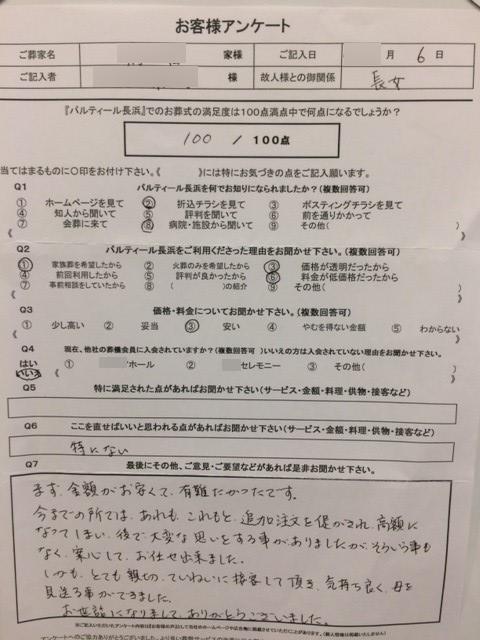 お客様アンケート
ご葬家名 家様 ご記入日 月 6 日
ご記入者 様 故人様との御関係 長女
『バルティール長浜』でのお葬式の満足度は100点満点中で何点になるでしょうか?
100 / 100点
当てはまるものに○印をお付け下さい。《 》には特にお気づきの点をご記入願います。
Q1 バルティール長浜を何でお知りになられましたか?(複数回答可)
① ホームページを見て ② 折込チラシを見て ③ ポスティングチラシを見て
④ 知人から聞いて ⑤ 評判を聞いて ⑥ 前を通りかかって
⑦ 会葬に来て ⑧ 病院・施設から聞いて ⑨ その他( )
《 》
Q2 バルティール長浜をご利用くださった理由をお聞かせ下さい。(複数回答可)
① 家族葬を希望したから ② 火葬のみを希望したから ③ 価格が透明だったから
④ 前回利用したから ⑤ 評判が良かったから ⑥ 料金が低価格だったから
⑦ 事前相談をしていたから ⑧ ( )の紹介 ⑨ その他( )
《 》
Q3 価格・料金についてお聞かせ下さい。(複数回答可)
① 少し高い ② 妥当 ③ 安い ④ やむを得ない金額 ⑤ わからない
《 》
Q4 現在、他社の葬儀会員に入会されていますか?(複数回答可)いいえの方は入会されていない理由をお聞かせ下さい。
はい ① ホール ② セレモニー ③ その他( )
いいえ 《 》
Q5 特に満足された点があればお聞かせ下さい(サービス・金額・料理・供物・接客など)
Q6 ここを直せばいいと思われる点があればお聞かせ下さい(サービス・金額・料理・供物・接客など)
特にない
Q7 最後にその他、ご意見・ご要望などがあれば是非お聞かせ下さい。
まず、金額がお安くて、有難たかったです。
今までの所では、あれも、これもと、追加注文を促がされ、高額に
なってしまい、後で大変な思いをする事がありましたが、そういう事も
なく、安心して、お任せ出来ました。
しかも、とても親切、ていねいに接客して頂き、気持ち良く、母を
見送る事ができました。
お世話になりまして、ありがとうございました。
※ご記入いただいたアンケート内容は【お客様の声】として当社のホームページや広告物に掲載させていただくことがあります。(個人情報は掲載いたしません)